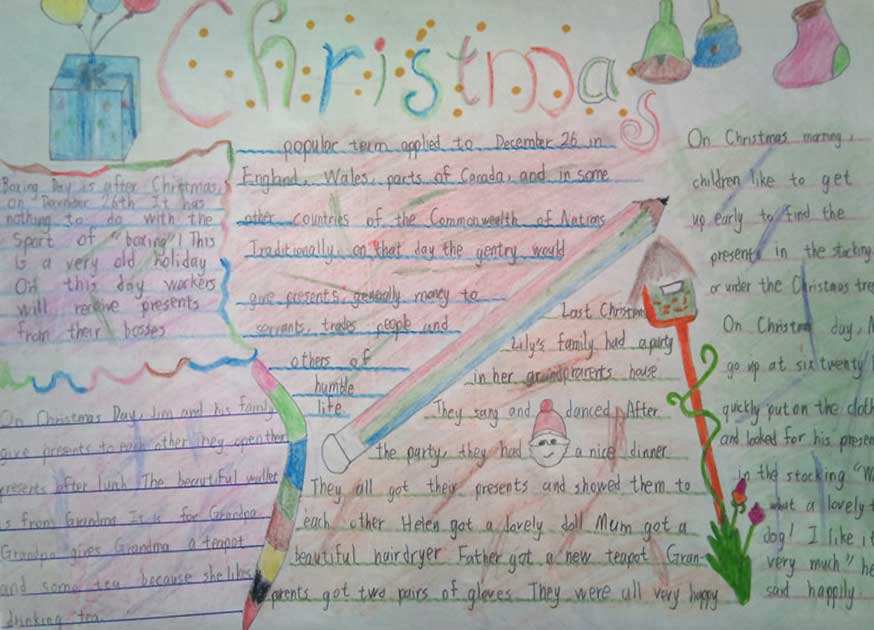 Christmas
Boxing Day is after Christmas,
on December 26th It has
nothing to do with the
Sport of "boxing"! This
is a very old holiday
On this day workers
will receive presents
from their bosses
popular term applied to December 26 in
England, Wales, parts of Canada, and in some
other countries of the Commonwealth of Nations
Traditionally on that day the gentry would
give presents, generally money to
servants, trades people and
others of
humble
life
On Christmas Day, Jim and his family
give presents to each other They open their
presents after lunch The beautiful wallet
is from Grandma It is for Grandpa
Grandpa gives Grandma a teapot
and some tea because she likes
drinking tea.
Last Christmas
Lily's family had a party
in her grandparents house
They sang and danced After
the party, they had a nice dinner
They all got their presents and showed them to
each other Helen got a lovely doll Mum got a
beautiful hairdryer Father got a new teapot Gran-
parents got two pairs of gloves They were all very happy
On Christmas morning,
children like to get
up early to find the
presents in the stocking
or under the Christmas tree
On Christmas day,
go up at six twenty
quickly put on the cloth
and looked for his presen
in the stocking "W
what a lovely t
dog! I like it
very much" he
said happily